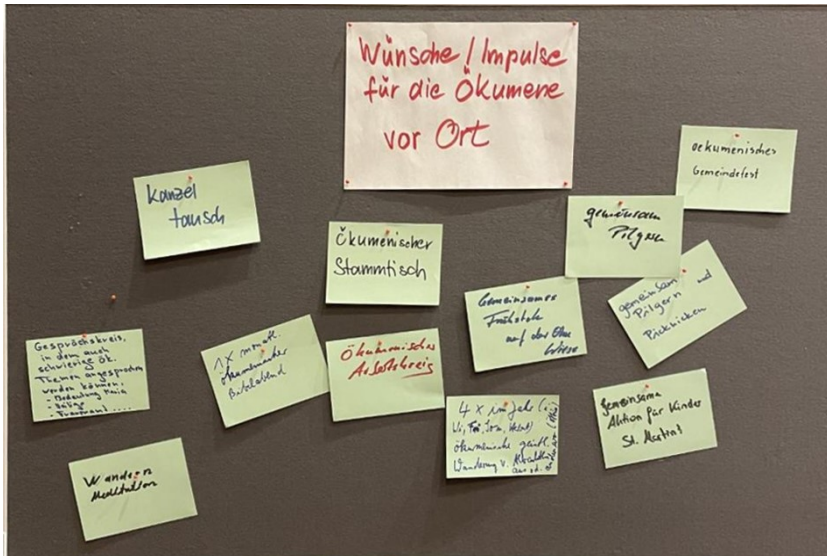 Wünsche / Impulse
für die Ökumene
vor Ort
oekumenisches
Gemeindefest
Kanzel
tausch
gemeinsam
Pilgern
Ökumenischer
Stammtisch
Gemeinsames
Frühstück
auf der
Wiese
gemeinsam und
Pilgern
Picknicken
Gesprächskreis,
in dem auch
schwierige ök.
Themen angesprochen
werden können:
- Bedeutung Maria
- 
1 x monatl.
ökumenischer
Bibelabend
Ökumenischer
Arbeitskreis
4 x im Jahr
ökumenische geistl.
Wanderung v.
Gemeinsame
Aktion für Kinder
St. Martin?
Wandern
Meditation